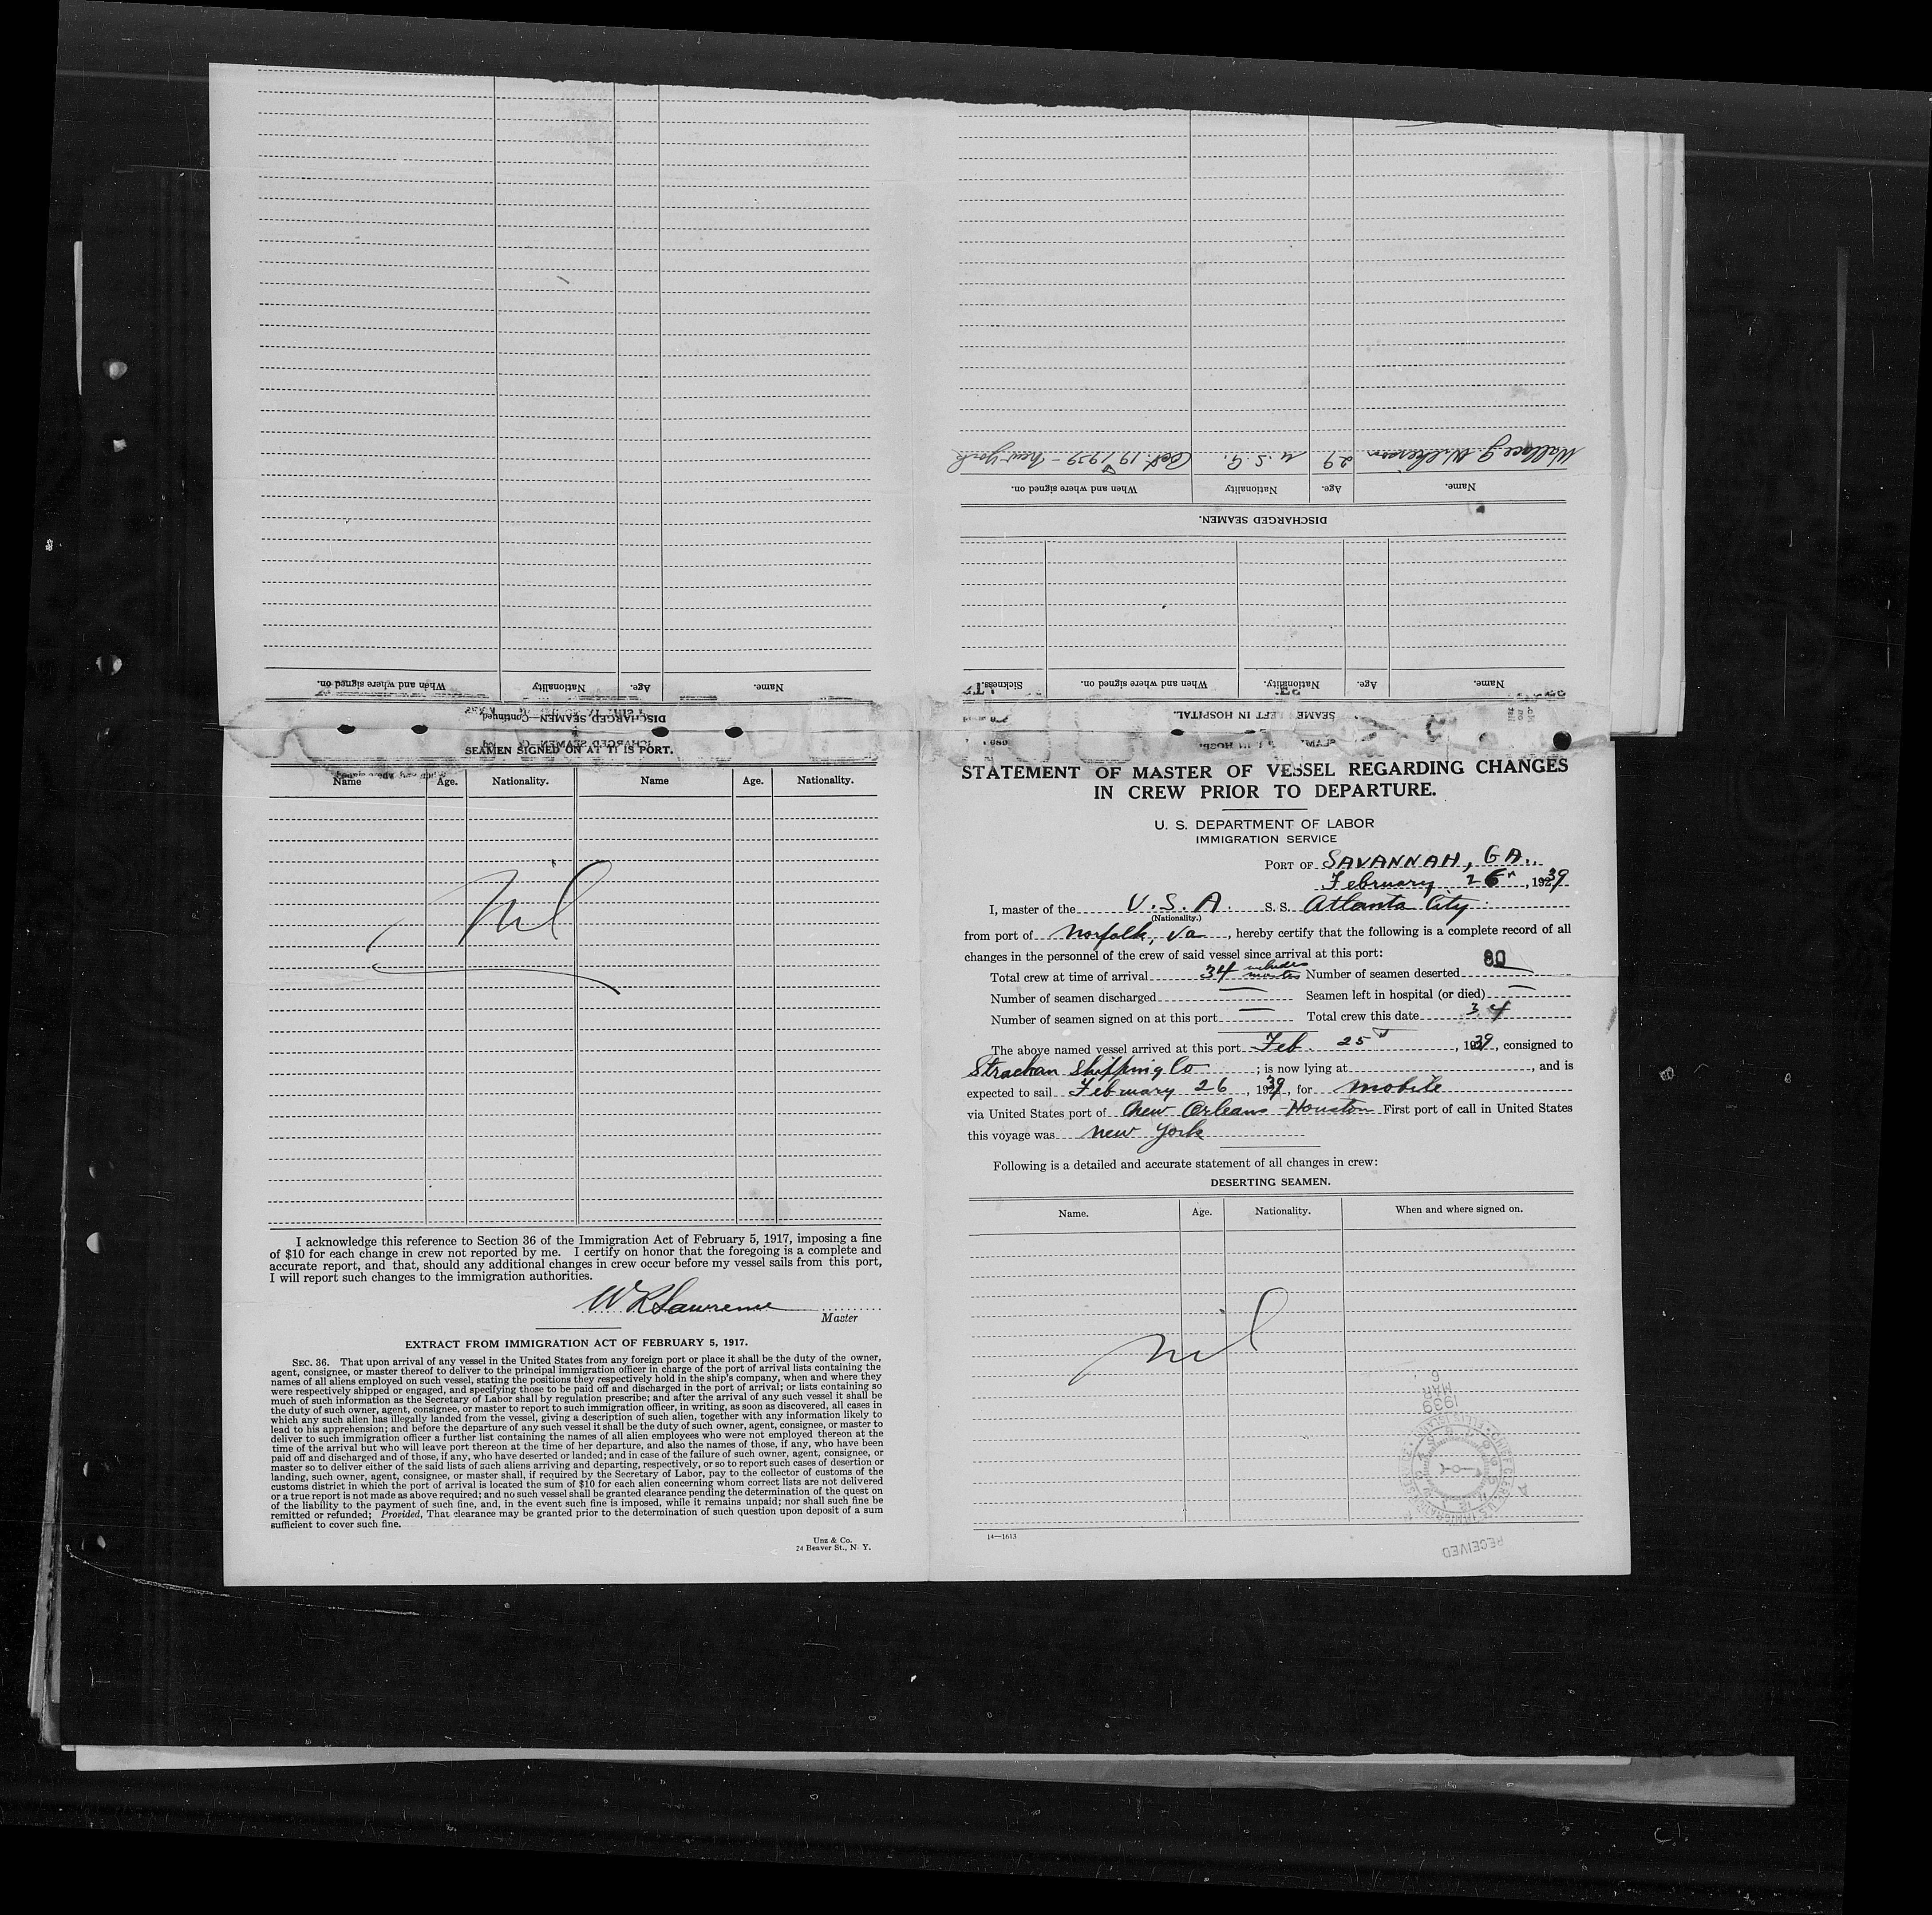 Wallace J. Wilkerson 29 U.S.A. Oct. 19, 1939 - New York
Name. Age. Nationality. When and where signed on.
DISCHARGED SEAMEN.
Name. Age. Nationality. When and where signed on. Sickness.
SEAMEN LEFT IN HOSPITAL.
Name. Age. Nationality. When and where signed on.
DISCHARGED SEAMEN—Continued
SEAMEN SIGNED ON AT THIS PORT.
Name Age. Nationality. Name Age. Nationality.
Nil
I acknowledge this reference to Section 36 of the Immigration Act of February 5, 1917, imposing a fine
of $10 for each change in crew not reported by me. I certify on honor that the foregoing is a complete and
accurate report, and that, should any additional changes in crew occur before my vessel sails from this port,
I will report such changes to the immigration authorities.
W R Lawrence
Master
EXTRACT FROM IMMIGRATION ACT OF FEBRUARY 5, 1917.
SEC. 36. That upon arrival of any vessel in the United States from any foreign port or place it shall be the duty of the owner,
agent, consignee, or master thereof to deliver to the principal immigration officer in charge of the port of arrival lists containing the
names of all aliens employed on such vessel, stating the positions they respectively hold in the ship's company, when and where they
were respectively shipped or engaged, and specifying those to be paid off and discharged in the port of arrival; or lists containing so
much of such information as the Secretary of Labor shall by regulation prescribe; and after the arrival of any such vessel it shall be
the duty of such owner, agent, consignee, or master to report to such immigration officer, in writing, as soon as discovered, all cases in
which any such alien has illegally landed from the vessel, giving a description of such alien, together with any information likely to
lead to his apprehension; and before the departure of any such vessel it shall be the duty of such owner, agent, consignee, or master to
deliver to such immigration officer a further list containing the names of all alien employees who were not employed thereon at the
time of the arrival but who will leave port thereon at the time of her departure, and also the names of those, if any, who have been
paid off and discharged and of those, if any, who have deserted or landed; and in case of the failure of such owner, agent, consignee, or
master so to deliver either of the said lists of such aliens arriving and departing, respectively, or so to report such cases of desertion or
landing, such owner, agent, consignee, or master shall, if required by the Secretary of Labor, pay to the collector of customs of the
customs district in which the port of arrival is located the sum of $10 for each alien concerning whom correct lists are not delivered
or a true report is not made as above required; and no such vessel shall be granted clearance pending the determination of the quest on
of the liability to the payment of such fine, and, in the event such fine is imposed, while it remains unpaid; nor shall such fine be
remitted or refunded; Provided, That clearance may be granted prior to the determination of such question upon deposit of a sum
sufficient to cover such fine.
Unz & Co.
24 Beaver St., N. Y.
STATEMENT OF MASTER OF VESSEL REGARDING CHANGES
IN CREW PRIOR TO DEPARTURE.
U. S. DEPARTMENT OF LABOR
IMMIGRATION SERVICE
PORT OF SAVANNAH, GA.
February 26, 1939
I, master of the U.S.A. S. S. Atlanta City
(Nationality.)
from port of Norfolk, Va, hereby certify that the following is a complete record of all
changes in the personnel of the crew of said vessel since arrival at this port:
80
Total crew at time of arrival 34 includes master Number of seamen deserted
Number of seamen discharged — Seamen left in hospital (or died) —
Number of seamen signed on at this port — Total crew this date 34
The above named vessel arrived at this port Feb. 25, 1939, consigned to
Strachan Shipping Co; is now lying at , and is
expected to sail February 26, 1939, for Mobile
via United States port of New Orleans - Houston First port of call in United States
this voyage was New York
Following is a detailed and accurate statement of all changes in crew:
DESERTING SEAMEN.
Name. Age. Nationality. When and where signed on.
nil
1939
MAR
6
14—1613
RECEIVED